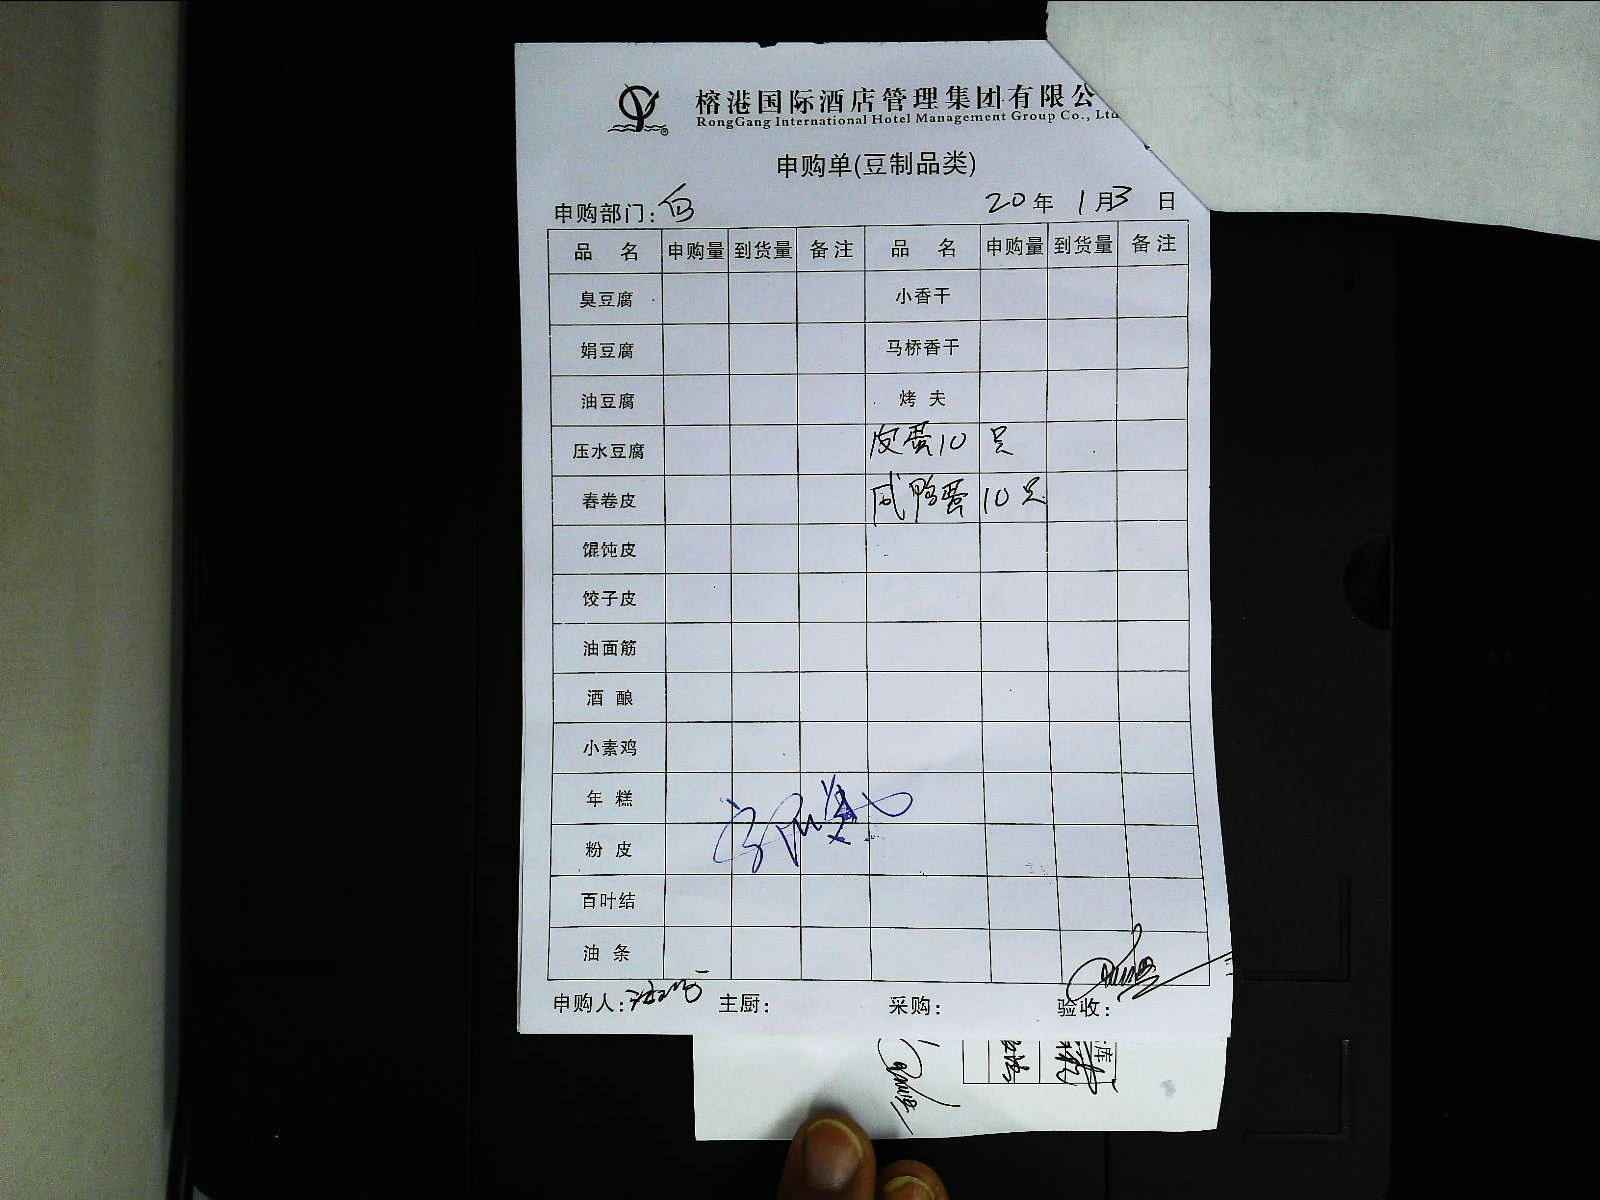 榕港国际酒店管理集团有限公
RongGang International Hotel Management Group Co., Ltd
申购单(豆制品类)
申购部门: 20年 1月3日
品 名 申购量 到货量 备注 品 名 申购量 到货量 备注
臭豆腐 小香干
娟豆腐 马桥香干
油豆腐 烤 夫
压水豆腐 皮蛋10 只
春卷皮 咸鸭蛋 10只
馄饨皮
饺子皮
油面筋
酒 酿
小素鸡
年 糕
粉 皮
百叶结
油 条
申购人: 主厨: 采购: 验收:
库